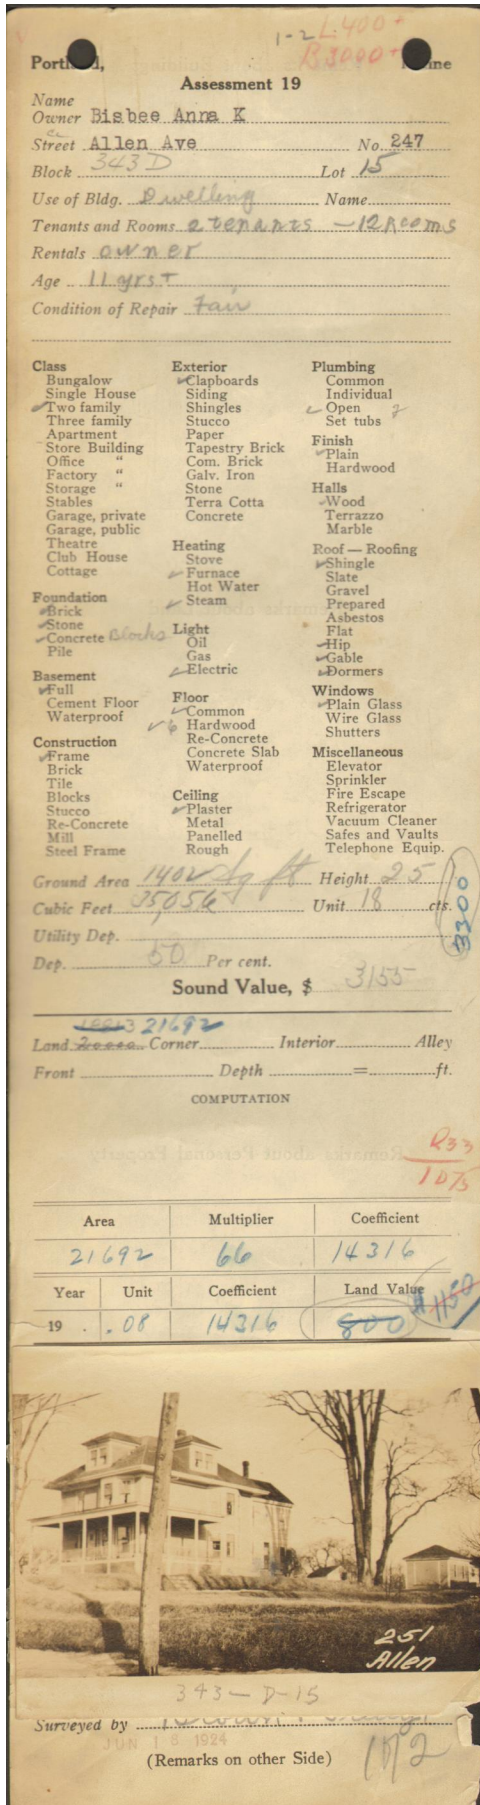 1-2 L.400+
B3000+
Portland, Maine
Assessment 19
Name
Owner Bisbee Anna K
Street Allen Ave No. 247
Block 343 D Lot 15
Use of Bldg. Dwelling Name
Tenants and Rooms 2 tenants - 12 Rooms
Rentals owner
Age 11 yrs +
Condition of Repair Fair
Class
Bungalow
Single House
Two family
Three family
Apartment
Store Building
Office "
Factory "
Storage "
Stables
Garage, private
Garage, public
Theatre
Club House
Cottage
Foundation
Brick
Stone
Concrete Blocks
Pile
Basement
Full
Cement Floor
Waterproof
Construction
Frame
Brick
Tile
Blocks
Stucco
Re-Concrete
Mill
Steel Frame
Exterior
Clapboards
Siding
Shingles
Stucco
Paper
Tapestry Brick
Com. Brick
Galv. Iron
Stone
Terra Cotta
Concrete
Heating
Stove
Furnace
Hot Water
Steam
Light
Oil
Gas
Electric
Floor
Common
6 Hardwood
Re-Concrete
Concrete Slab
Waterproof
Ceiling
Plaster
Metal
Panelled
Rough
Plumbing
Common
Individual
Open 2
Set tubs
Finish
Plain
Hardwood
Halls
Wood
Terrazzo
Marble
Roof — Roofing
Shingle
Slate
Gravel
Prepared
Asbestos
Flat
Hip
Gable
Dormers
Windows
Plain Glass
Wire Glass
Shutters
Miscellaneous
Elevator
Sprinkler
Fire Escape
Refrigerator
Vacuum Cleaner
Safes and Vaults
Telephone Equip.
Ground Area 1402 Sq ft Height 25
Cubic Feet 35,056 Unit 18 cts.
3300
Utility Dep.
Dep. 50 Per cent.
Sound Value, $ 3155
21692
Land 20000 Corner Interior Alley
Front Depth = ft.
COMPUTATION
R33
1075
Area Multiplier Coefficient
21692 66 14316
Year Unit Coefficient Land Value
19 .08 14316 800 1150
251
Allen
343-D-15
Surveyed by
JUN 18 1924
(Remarks on other Side)